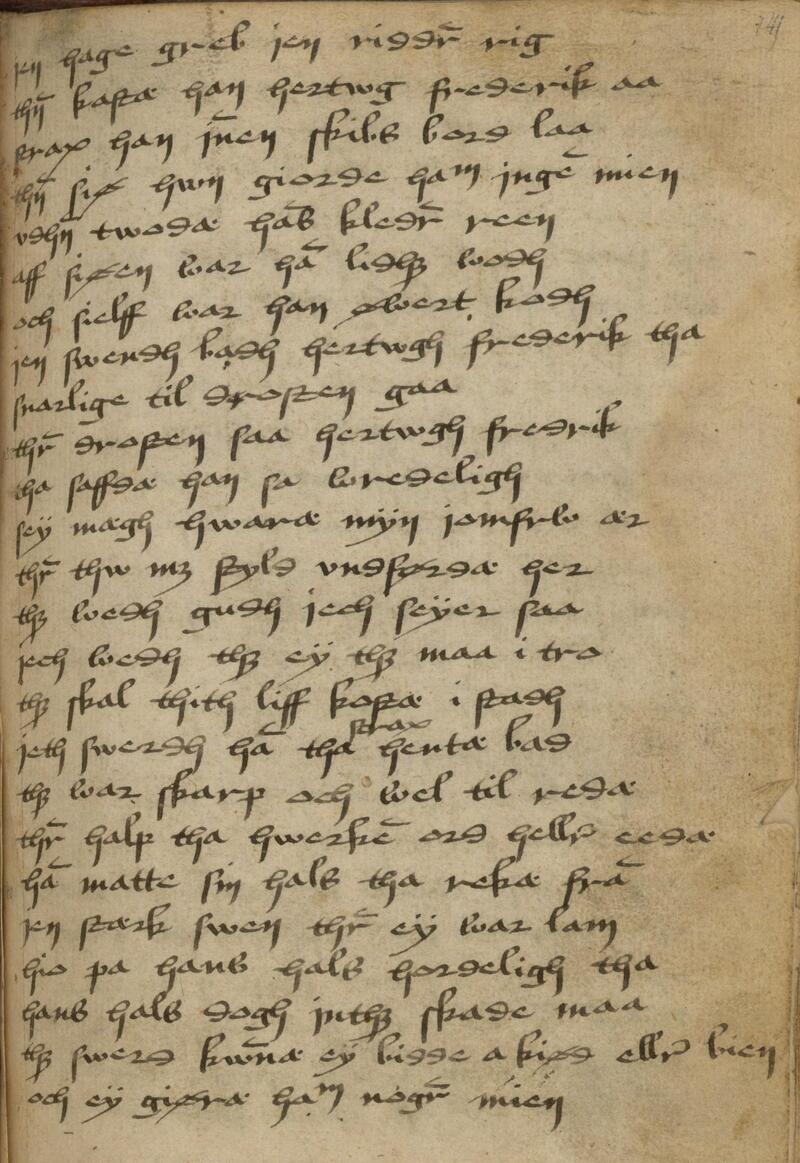 741
jen hage greb jen riddr̄ rig
thn̄ kastæ han hertwg frederik aa
strax han jn̄en skibs bord laa
thn̄ siø hwn giorde ham jngē mien
vdhn̄ twodæ hās kledr̄ reen
aff siøen war hā lidhꝫ wodh
och sielff war han øwert kodh
jen swendh badh hertwgh frederik tha
snarlige til drosten gaa
thr̄ drosten saa hertwgh fredrik
tha saffdæ han sa wredeligh
sey mægh hwaræ myn jomfrw ær
thr̄ thw mꝫ styld vndførdæ her
thꝫ wedh gudh jech seyer saa
jech wedh thꝫ ey thꝫ maa i tro
thꝫ skal thith liff kostæ i stadh
jeth swerdh hā tha strax hentæ bad
thꝫ war skarp och wel til redæ
thr̄ halp tha hwerkē ord hellr̄ eedæ
hā matte sin hals tha rekæ frā
jen stærk swen thr̄ ey war lam
hio pa hans hals hordeligh tha
hans hals dogh jnthꝫ skade maa
thꝫ swerd kwn̄æ ey bidde a kiød ellr̄ bien
och ey giøræ ham nogr̄ mien